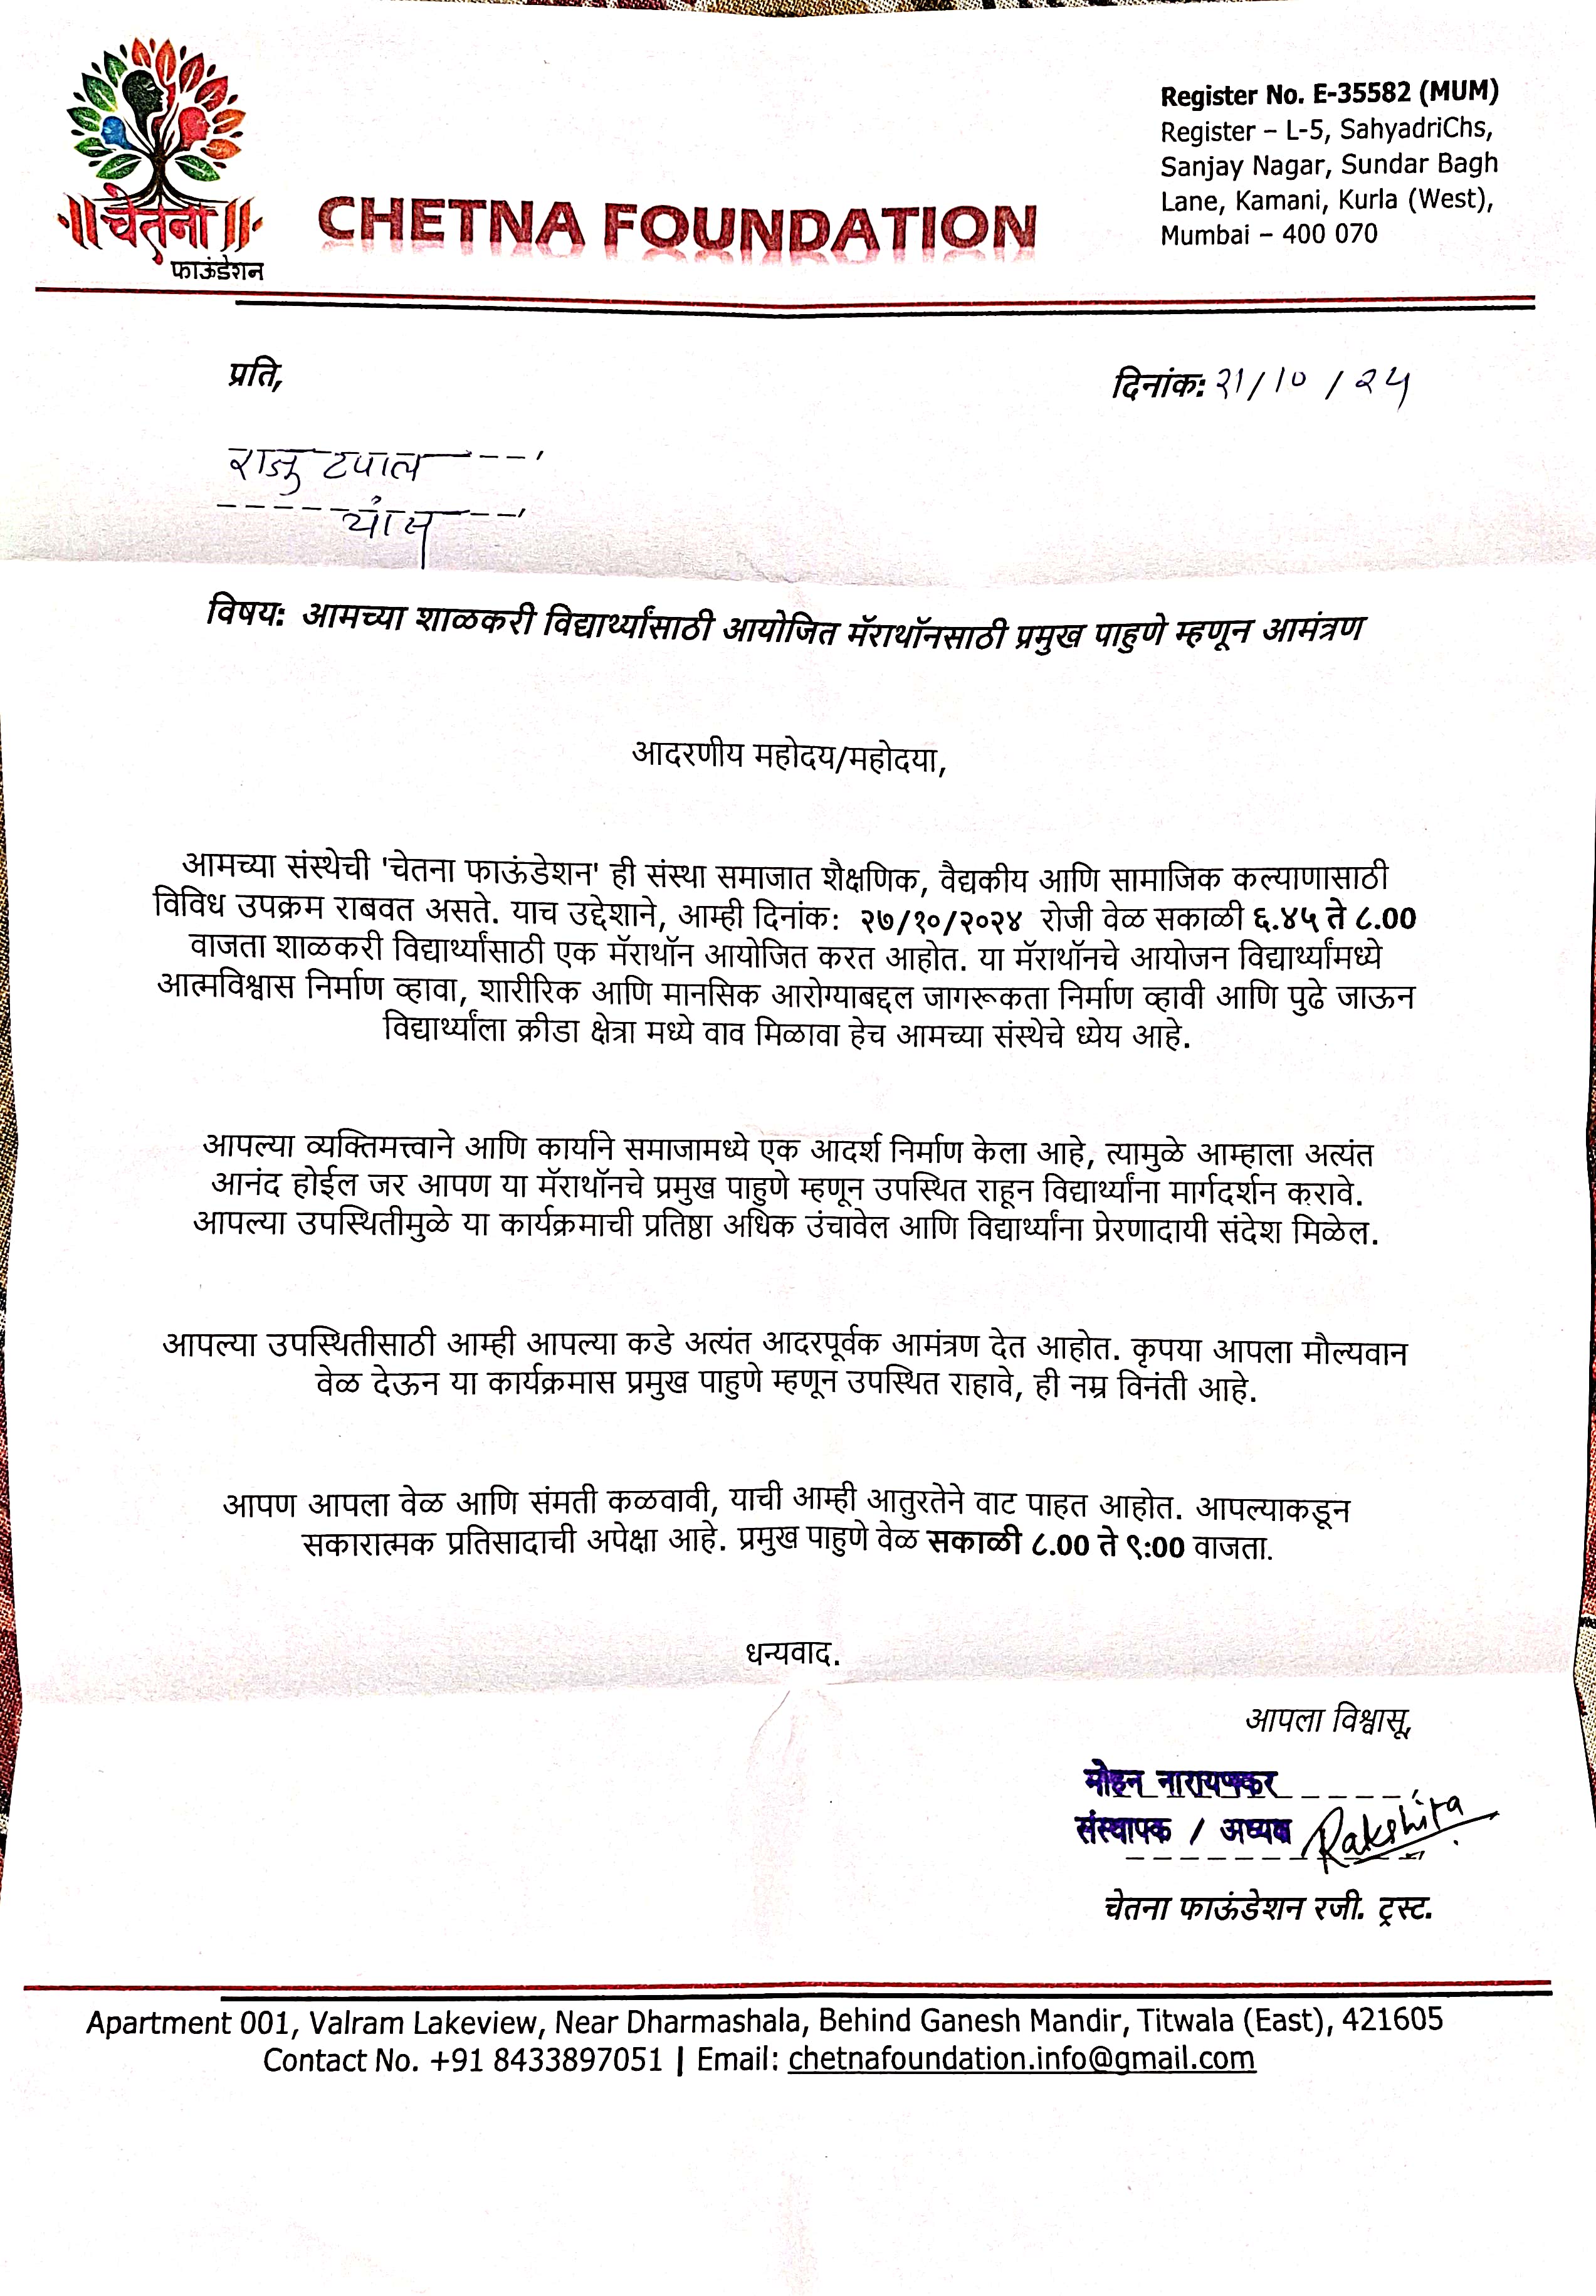 ॥चेतना॥
फाऊंडेशन
CHETNA FOUNDATION
Register No. E-35582 (MUM)
Register – L-5, SahyadriChs,
Sanjay Nagar, Sundar Bagh
Lane, Kamani, Kurla (West),
Mumbai – 400 070
प्रति,
दिनांक: २१/१०/२५
राजु टपाल
यांस
विषय: आमच्या शाळकरी विद्यार्थ्यांसाठी आयोजित मॅराथॉनसाठी प्रमुख पाहुणे म्हणून आमंत्रण
आदरणीय महोदय/महोदया,
आमच्या संस्थेची 'चेतना फाऊंडेशन' ही संस्था समाजात शैक्षणिक, वैद्यकीय आणि सामाजिक कल्याणासाठी
विविध उपक्रम राबवत असते. याच उद्देशाने, आम्ही दिनांक: २७/१०/२०२४ रोजी वेळ सकाळी ६.४५ ते ८.00
वाजता शाळकरी विद्यार्थ्यांसाठी एक मॅराथॉन आयोजित करत आहोत. या मॅराथॉनचे आयोजन विद्यार्थ्यांमध्ये
आत्मविश्वास निर्माण व्हावा, शारीरिक आणि मानसिक आरोग्याबद्दल जागरूकता निर्माण व्हावी आणि पुढे जाऊन
विद्यार्थ्यांला क्रीडा क्षेत्रा मध्ये वाव मिळावा हेच आमच्या संस्थेचे ध्येय आहे.
आपल्या व्यक्तिमत्त्वाने आणि कार्याने समाजामध्ये एक आदर्श निर्माण केला आहे, त्यामुळे आम्हाला अत्यंत
आनंद होईल जर आपण या मॅराथॉनचे प्रमुख पाहुणे म्हणून उपस्थित राहून विद्यार्थ्यांना मार्गदर्शन करावे.
आपल्या उपस्थितीमुळे या कार्यक्रमाची प्रतिष्ठा अधिक उंचावेल आणि विद्यार्थ्यांना प्रेरणादायी संदेश मिळेल.
आपल्या उपस्थितीसाठी आम्ही आपल्या कडे अत्यंत आदरपूर्वक आमंत्रण देत आहोत. कृपया आपला मौल्यवान
वेळ देऊन या कार्यक्रमास प्रमुख पाहुणे म्हणून उपस्थित राहावे, ही नम्र विनंती आहे.
आपण आपला वेळ आणि संमती कळवावी, याची आम्ही आतुरतेने वाट पाहत आहोत. आपल्याकडून
सकारात्मक प्रतिसादाची अपेक्षा आहे. प्रमुख पाहुणे वेळ सकाळी ८.00 ते ९:00 वाजता.
धन्यवाद.
आपला विश्वासू,
मोहन नारायणकर
संस्थापक / अध्यक्ष
Rakshita
चेतना फाऊंडेशन रजी. ट्रस्ट.
Apartment 001, Valram Lakeview, Near Dharmashala, Behind Ganesh Mandir, Titwala (East), 421605
Contact No. +91 8433897051 | Email: chetnafoundation.info@gmail.com